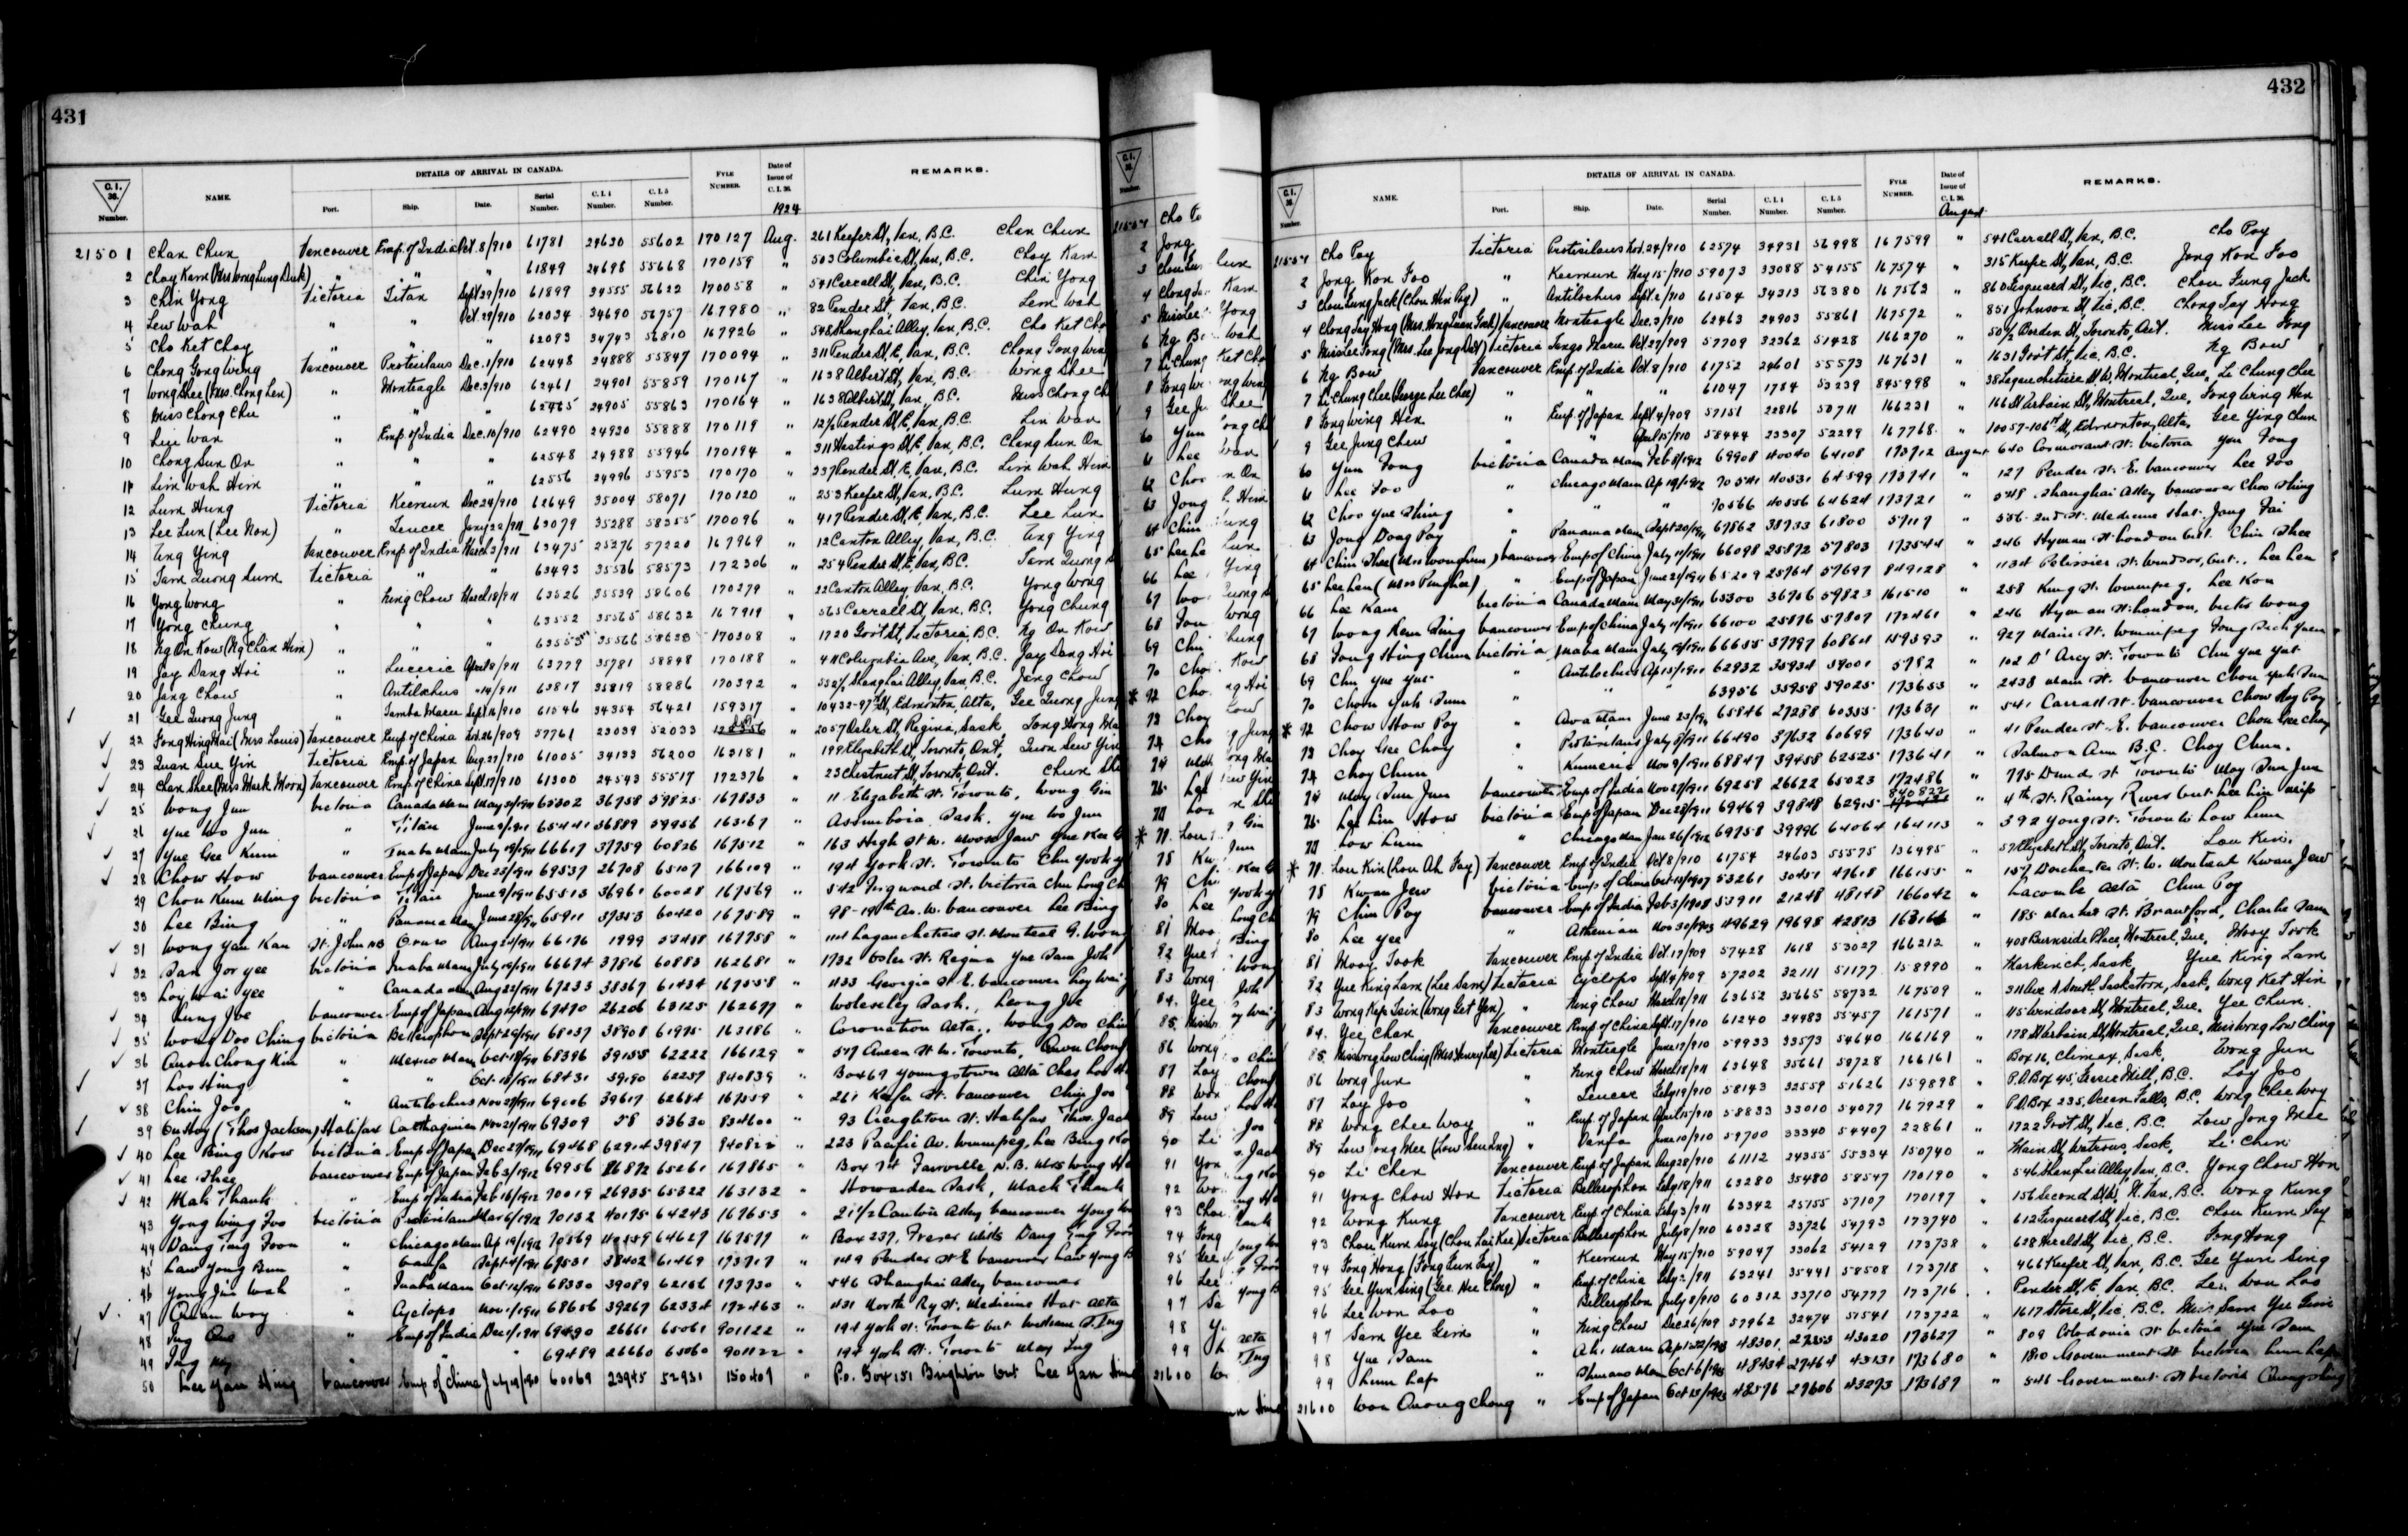 431
DETAILS OF ARRIVAL IN CANADA.
C.I. 36. Number. NAME. Port. Ship. Date. Serial Number. C.I. 4 Number. C.I. 5 Number. FYLE NUMBER. Date of Issue of C.I. 36. REMARKS.
1924
21501 Chan Chun Vancouver Emp. of India Oct. 8/910 61781 24630 55602 170127 Aug. 261 Keefer St, Van, B.C. Chan Chun
2 Choy Kam (Mrs Wong Lung Duck) " " " 61849 24696 55668 170159 " 503 Columbia St, Van, B.C. Choy Kam
3 Chin Yong Victoria Titan Sept 29/910 61899 34555 56622 170058 " 541 Carrall St, Van, B.C. Chin Yong
4 Lew Wah " " Oct. 29/910 62034 34690 56757 167980 " 82 Pender St, Van, B.C. Lew Wah
5 Cho Ket Choy " " " 62093 34743 56810 167926 " 548 Shanghai Alley, Van, B.C. Cho Ket Cho
6 Chong Gong Wing Vancouver Protesilaus Dec. 1/910 62448 24888 55847 170094 " 311 Pender St. E, Van, B.C. Chong Gong Win
7 Wong Shee (Mrs. Chong Len) " Monteagle Dec. 3/910 62461 24901 55859 170167 " 1638 Albert St, Van, B.C. Wong Shee
8 Miss Chong Chu " " " 62465 24905 55863 170164 " 1638 Albert St, Van, B.C. Miss Chong Ch
9 Lin Wan " Emp. of India Dec. 10/910 62490 24930 55888 170119 " 12½ Pender St. E, Van, B.C. Lin Wan
10 Chong Sun On " " " 62548 24988 55946 170194 " 311 Hastings St, E, Van, B.C. Chong Sun On
11 Lim Wah Him " " " 62556 24996 55953 170170 " 237 Pender St. E, Van, B.C. Lim Wah Him
12 Lum Hung Victoria Keemun Dec 29/910 62649 35004 58071 170120 " 253 Keefer St, Van, B.C. Lum Hung
13 Lee Lun (Lee Non) " Teucer Jany 22/911 63079 35288 58355 170096 " 417 Pender St, E, Van, B.C. Lee Lun
14 Ung Ying Vancouver Emp. of India March 3/911 63475 25276 57220 167969 " 12 Canton Alley, Van, B.C. Ung Ying
15 Tam Quong Sum Victoria " " 63493 35506 58573 172306 " 254 Pender St, E, Van, B.C. Tam Quong S
16 Yong Wong " Ning Chow March 18/911 63526 35539 58606 170279 " 22 Canton Alley, Van, B.C. Yong Wong
17 Yong Chung " " " 63552 35565 58632 167919 " 565 Carrall St, Van, B.C. Yong Chung
18 Ng On Kow (Ng Chan Him) " " " 63553 35566 58633 170308 " 1720 Gov't St, Victoria, B.C. Ng On Kow
19 Jay Dang Hoi " Luceric April 8/911 63779 35781 58848 170188 " 411 Columbia Ave, Van, B.C. Jay Dang Hoi
20 Jeng Chow " Antilochus " 14/911 63817 35819 58886 170392 " 552½ Shanghai Alley, Van, B.C. Jeng Chow
21 Gee Quong Jung " Tamba Maru Sept. 16/910 61546 34354 56421 159317 " 10432-97th St, Edmonton, Alta, Gee Quong Jung
22 Fong Hing Hai (Mrs Louis) Vancouver Emp. of China Nov. 26/909 57761 23039 52033 " 2057 Osler St, Regina, Sask,
23 Quan Sue Yin Victoria Emp. of Japan Aug. 27/910 61005 34133 56200 163181 " 199 Elizabeth St, Toronto, Ont, Quon Sew Yin
24 Chan Shee (Mrs Mark Moon) Vancouver Emp. of China Sept. 17/910 61300 24543 55517 172376 " 23 Chestnut St, Toronto, Ont. Chun She
25 Wong Jun Victoria Canada Maru May 31/1911 65302 36758 59825 167833 " 11 Elizabeth St. Toronto, Wong Gin
26 Yue Wo Jun " Titan June 9/1911 65441 36889 59956 163167 " Assiniboia Sask. Yue Wo Jun
27 Yue Gee Kum " Inaba Maru July 18/1911 66617 37759 60826 167512 " 163 High St W. Moose Jaw Yue Kee G
28 Chow How Vancouver Emp of Japan Dec 25/1911 69537 26708 65107 166109 " 194 York St. Toronto Chu York
29 Chou Kum Ming Victoria Titan June 9/1911 65513 36961 60028 167569 " 542 Fisguard St. Victoria Chu Long Ch
30 Lee Bing " Panama Maru June 28/911 65911 37353 60420 167589 " 98-14th Av. W. Vancouver Lee Bing
31 Wong Yan Kan St. John NB Oruro Aug 24/1911 66176 1999 53458 167758 " Lagauchetiere St. Montreal G. Wong
32 Tan Jor Yee Victoria Inaba Maru July 18/1911 66674 37816 60883 162681 " 1732 Osler St. Regina Yue Tam Joh
33 Loy Wai Yee " Canada Maru Aug 22/1911 67233 38367 61434 167558 " 1133 Georgia St E. Vancouver Loy Wai
34 Leung Joe Vancouver Emp of Japan Aug 12/1911 67470 26206 63125 162677 " Wolseley Sask., Leong Joe
35 Wong Doo Ching Victoria Bellerophon Sept 26/1911 68037 38908 61975 163186 " Coronation Alta., Wong Doo Chin
36 Quon Chong Kim " Mexico Maru Oct 18/1911 68396 39155 62222 166129 " 547 Queen St W. Toronto, Quon Chong
37 Loo Hing " " Oct. 18/1911 68431 39190 62257 840839 " Box 69 Youngstown Alta Chas Loo H
38 Chin Joo " Antilochus Nov 28/1911 69006 39617 62684 167559 " 261 Keefer St. Vancouver Chin Joo
39 (Thos Jackson) Halifax Carthaginian Nov 21/1911 69309 58 53630 834600 " 93 Creighton St. Halifax Thos. Jack
40 Lee Bing Kow Victoria Emp of Japan Dec 28/1911 69468 62914 39847 840822 " 223 Pacific Av. Winnipeg, Lee Bing Ko
41 Lee Shee Vancouver Emp of Japan Feb 3/1912 69956 26872 65261 167865 " Box 74 Fairville N.B. Mrs Wong H
42 Mah Thank " Emp of India Feb 16/1912 70019 26935 65322 163132 " Howarden Sask, Mack Thank
43 Yong Wing Foo Victoria Protesilaus Mar 6/1912 70132 40175 64243 167653 " 21½ Canton Alley Vancouver Yong Won
44 Dang Ting Foon " Chicago Maru Ap 19/1912 70569 40559 64627 167577 " Box 237, Fraser Mills Dang Ting Foon
45 Law Yong Bun " Panfa Sept 4/1911 67531 38402 61469 173717 " 149 Pender St E Vancouver Law Yong B
46 Yong Jin Wah " Inaba Maru Oct 12/1911 68330 39089 62156 173730 " 546 Shanghai Alley Vancouver
47 Quan Woy " Cyclops Nov 1/1911 68656 39267 62334 172463 " 431 North Ry St. Medicine Hat Alta
48 Ing " Emp of India Dec 1/1911 69490 26661 65061 901122 " 194 York St. Toronto Ont William S. Ing
49 Ing " " " 69489 26660 65060 901122 " 194 York St. Toronto May Ing
50 Lee Yan Hing Vancouver Emp of China July 19/1910 60069 23945 52931 150407 " P.O. Box 151 Brighton Ont Lee Yan Hin
432
DETAILS OF ARRIVAL IN CANADA.
C.I. 36. Number. NAME. Port. Ship. Date. Serial Number. C.I. 4 Number. C.I. 5 Number. FYLE NUMBER. Date of Issue of C.I. 36. REMARKS.
August
Cho Poy Victoria Protesilaus Nov. 24/910 62574 34931 56998 167599 " 541 Carrall St, Van, B.C. Cho Poy
2 Jong Kon Foo " Keemun May 15/910 59073 33088 54155 167574 " 315 Keefer St, Van, B.C. Jong Kon Foo
3 Chou Fung Jack (Chou Hin Poy) " Antilochus Sept. 2/910 61504 34313 56380 167563 " 860 Fisguard St, Vic, B.C. Chou Fung Jack
4 Chong Jay Hong Vancouver Monteagle Dec. 3/910 62463 24903 55861 167572 " 851 Johnson St, Vic, B.C. Chong Jay Hong
5 Miss Lee Fong Victoria Tango Maru Oct. 27/909 57709 32362 51428 166270 " 50½ Borden St, Toronto, Ont. Miss Lee Fong
6 Ng Bow Vancouver Emp. of India Oct. 8/910 61752 24601 55573 167631 " 1631 Gov't St, Vic, B.C. Ng Bow
7 Li Chung Chee (George Lee Chee) " " " 61047 1784 53239 845998 " 38 Lagauchetiere St. W. Montreal, Que, Li Chung Chee
8 Fong Wing Hen " Emp. of Japan Sept. 4/909 57151 22816 50711 166231 " 166 St Urbain St, Montreal, Que, Fong Wing Hen
9 Gee Jung Chew " " April 15/910 58444 23307 52299 167768 " 10057-106th St, Edmonton, Alta, Gee Ying Chun
60 Yun Fong Victoria Canada Maru Feb 8/1912 69908 40040 64108 173712 August 640 Cormorant St. Victoria Yun Fong
61 Lee Foo " Chicago Maru Ap 19/1912 70541 40531 64599 173741 " 127 Pender St. E. Vancouver Lee Foo
62 Choo Yue Thing " " " 70566 40556 64624 173721 " 548 Shanghai Alley Vancouver Choo Thing
63 Jong Dong Poy " Panama Maru Sept 20/1911 67862 38733 61800 57117 " 536 2nd St. Medicine Hat. Jong Fai
64 Chin Shee Vancouver Emp of China July 11/1911 66098 25872 57803 173544 " 246 Hyman St London Ont. Chin Shee
65 Lee Len " Emp of Japan June 21/1911 65209 25764 57697 849128 " 1134 Pelissier St. Windsor, Ont., Lee Len
66 Lee Kam Victoria Canada Maru May 31/1911 65300 36756 59823 161510 " 258 King St. Winnipeg, Lee Kon
67 Wong Kem Ting Vancouver Emp of China July 11/1911 66100 25876 57807 172461 " 246 Hyman St London, Victor Wong
68 Fong Hing Chun Victoria Inaba Maru July 18/1911 66655 37797 60864 159393 " 927 Main St. Winnipeg
69 Chu Yue Yut " Antilochus Ap 15/1911 62832 35934 59001 5782 " 102 D'Arcy St. Toronto Chu Yue Yut
70 Chou Yuk Tum " " " 63956 35958 59025 173653 " 2438 Main St. Vancouver Chou Yuk Tum
Chow How Poy " Awa Maru June 23/1911 65846 27288 60355 173631 " 541 Carrall St. Vancouver Chow Hoy Poy
73 Choy Gee Choy " Protesilaus July 8/1911 66490 37632 60699 173640 " 41 Pender St. E. Vancouver Chou Gee Choy
74 Choy Chun " Kumeric Nov 9/1911 68847 39458 62525 173641 " Salmon Arm B.C. Choy Chun.
May Tum Jun Vancouver Emp of India Nov 27/1911 69258 26622 65023 172486 " 775 Dund. St Toronto May Tum Jun
Lee Lim How Victoria Emp of Japan Dec 28/1911 69469 39848 62915 840822 " 4th St. Rainy River Ont Lee Lim
Low Lum " Chicago Maru Jan 26/1912 69758 39996 64064 164113 " 392 Yonge St. Toronto Low Lum
Lou Kin (Lou Ah Fay) Vancouver Emp. of India Oct 8/910 61754 24603 55575 136495 " 57 Elizabeth St, Toronto, Ont. Lou Kin.
78 Kwan Jew Victoria Emp. of China Oct 18/1907 53261 30451 49618 166155 " 157 Dorchester St. W. Montreal Kwan Jew
79 Chin Poy Vancouver Emp of India Feb 3/1908 53911 21248 48148 166042 " Lacombe Alta Chun Poy
80 Lee Yee " Athenian Nov 30/1903 49629 19698 42813 163166 " 185 Market St. Brantford, Charlie Sam
81 Mooy Took Vancouver Emp. of India Oct. 17/909 57428 1618 53027 166212 " 408 Burnside Place, Montreal, Que, Mooy Took
82 Yue King Lam (Lee Sam) Victoria Cyclops Sept. 4/909 57202 32111 51177 158990 " Markinch, Sask, Yue King Lam
83 Wong Kep Tain (Wong Get Yen) " Ning Chow March 18/911 63652 35665 58732 167509 " 311 Ave. A South, Saskatoon, Sask, Wong Ket Hin
84 Yee Chan Vancouver Emp. of China Sept. 17/910 61240 24483 55457 161571 " 115 Windsor St, Montreal, Que, Yee Chun.
85 Miss Wong Low Ching (Mrs Henry Lee) Victoria Monteagle June 17/910 59933 33573 54640 166169 " 178 St Urbain St, Montreal, Que, Miss Wong Low Ching
86 Wong Jun " Ning Chow March 18/911 63648 35661 58728 166161 " Box 16, Climax, Sask, Wong Jun
87 Loy Joo " Teucer Feby 19/910 58143 32559 51626 159898 " P.O. Box 45, Fraser Mill, B.C. Loy Joo
88 Wong Chee Woy " Emp. of Japan April 15/910 58833 33010 54077 167929 " P.O. Box 235, Ocean Falls, B.C. Wong Chee Woy
89 Low Jong Mee (Low Sen Ing) " Panfa June 10/910 59700 33340 54407 22861 " 1722 Gov't St, Vic, B.C. Low Jong Mee
90 Li Chen Vancouver Emp. of Japan Aug 28/910 61112 24355 55334 150740 " Main St, Watrous, Sask, Li Chen
91 Yong Chow Hon Victoria Bellerophon Feby 18/911 63280 35480 58547 170190 " 546 Shanghai Alley, Van, B.C. Yong Chow Hon
92 Wong Kung Vancouver Emp. of China Feby 3/911 63342 25755 57107 170197 " 156 Second St. W, N. Van, B.C. Wong Kung
93 Chou Kum Soy (Chou Lai Kee) Victoria Bellerophon July 8/910 60328 33726 54793 173740 " 612 Fisguard St, Vic, B.C. Chou Kum Soy
94 Fong Hong (Fong Lun Fay) " Keemun May 15/910 59047 33062 54129 173738 " 628 Herald St, Vic, B.C. Fong Hong
95 Gee Yun Sing (Gee Hee Chong) " Emp. of China Feby 2/911 63241 35441 58508 173718 " 466 Keefer St, Van, B.C. Gee Yun Sing
96 Lee Won Loo " Bellerophon July 8/910 60312 33710 54777 173716 Pender St, E. Van, B.C. Lee Won Loo
97 Sam Yee Gim " Ning Chow Dec 26/09 57962 32474 51541 173722 " 1617 Store St, Vic, B.C. Miss Sam Yee Gim
98 Yue Sam " Aki Maru Sept 22/1903 48301 27353 43020 173627 " 809 Caledonia St Victoria Yue Sam
99 Lum Lap " Shinano Maru Oct 6/1903 48434 27464 43131 173680 " 1810 Government St Victoria Lum Lap
21600 Won Quong Chong " Emp of Japan Oct 13/1903 48576 27606 43273 173687 " 546 Government St Victoria